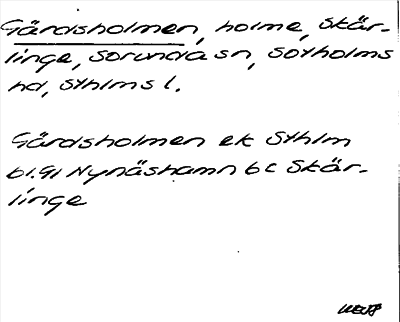 Gärdsholmen, holme, Skär-
linge, Sorunda sn, Sotholms
hd, Sthlms l.
Gärdsholmen ek Sthlm
bl. 91 Nynäshamn 6c Skär-
linge